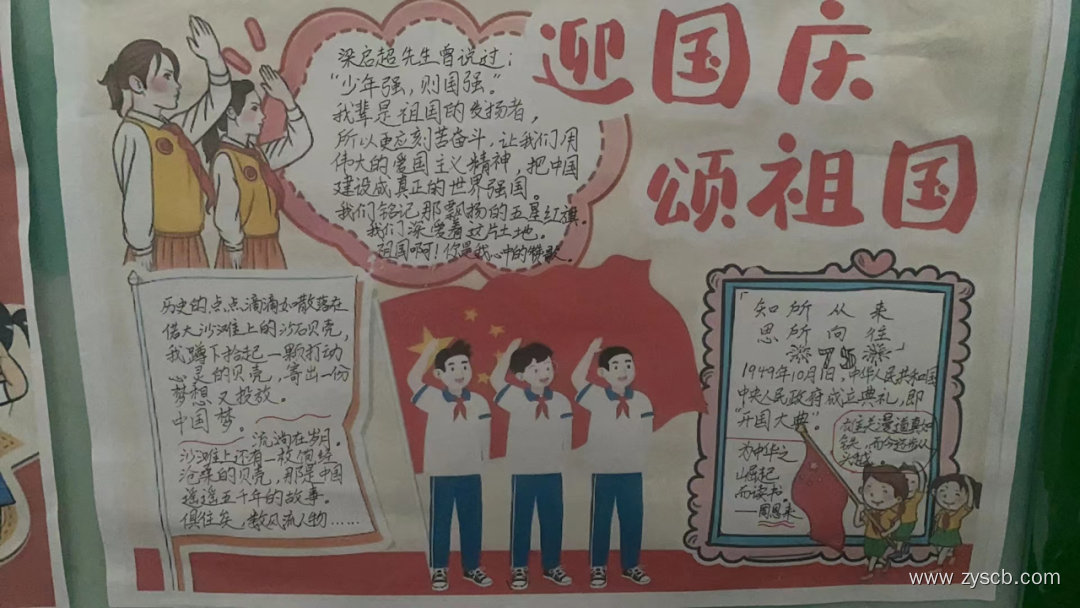 迎国庆
颂祖国
梁启超先生曾说过：
“少年强，则国强。”
我辈是祖国的发扬者，
所以更应刻苦奋斗，让我们用
伟大的爱国主义精神，把中国
建设成真正的世界强国。
我们铭记那飘扬的五星红旗.
我们深爱着这片土地.
祖国啊！你是我心中的赞歌.
历史的点点滴滴如散落在
偌大沙滩上的沙石贝壳，
我蹲下拾起一颗打动
心灵的贝壳，寄出一份
梦想又投放。
中国梦。
流淌在岁月.
沙滩上还有一枚饱经
沧桑的贝壳，那是中国
遥遥五千年的故事.
俱往矣，数风流人物……
「知所从来
思所向往
1949年10月1日，中华人民共和国
中央人民政府成立典礼，即
“开国大典”.
雄关漫道真如
铁，而今迈步从
头越
为中华之
崛起
而读书。
——周恩来
www.zyscb.com